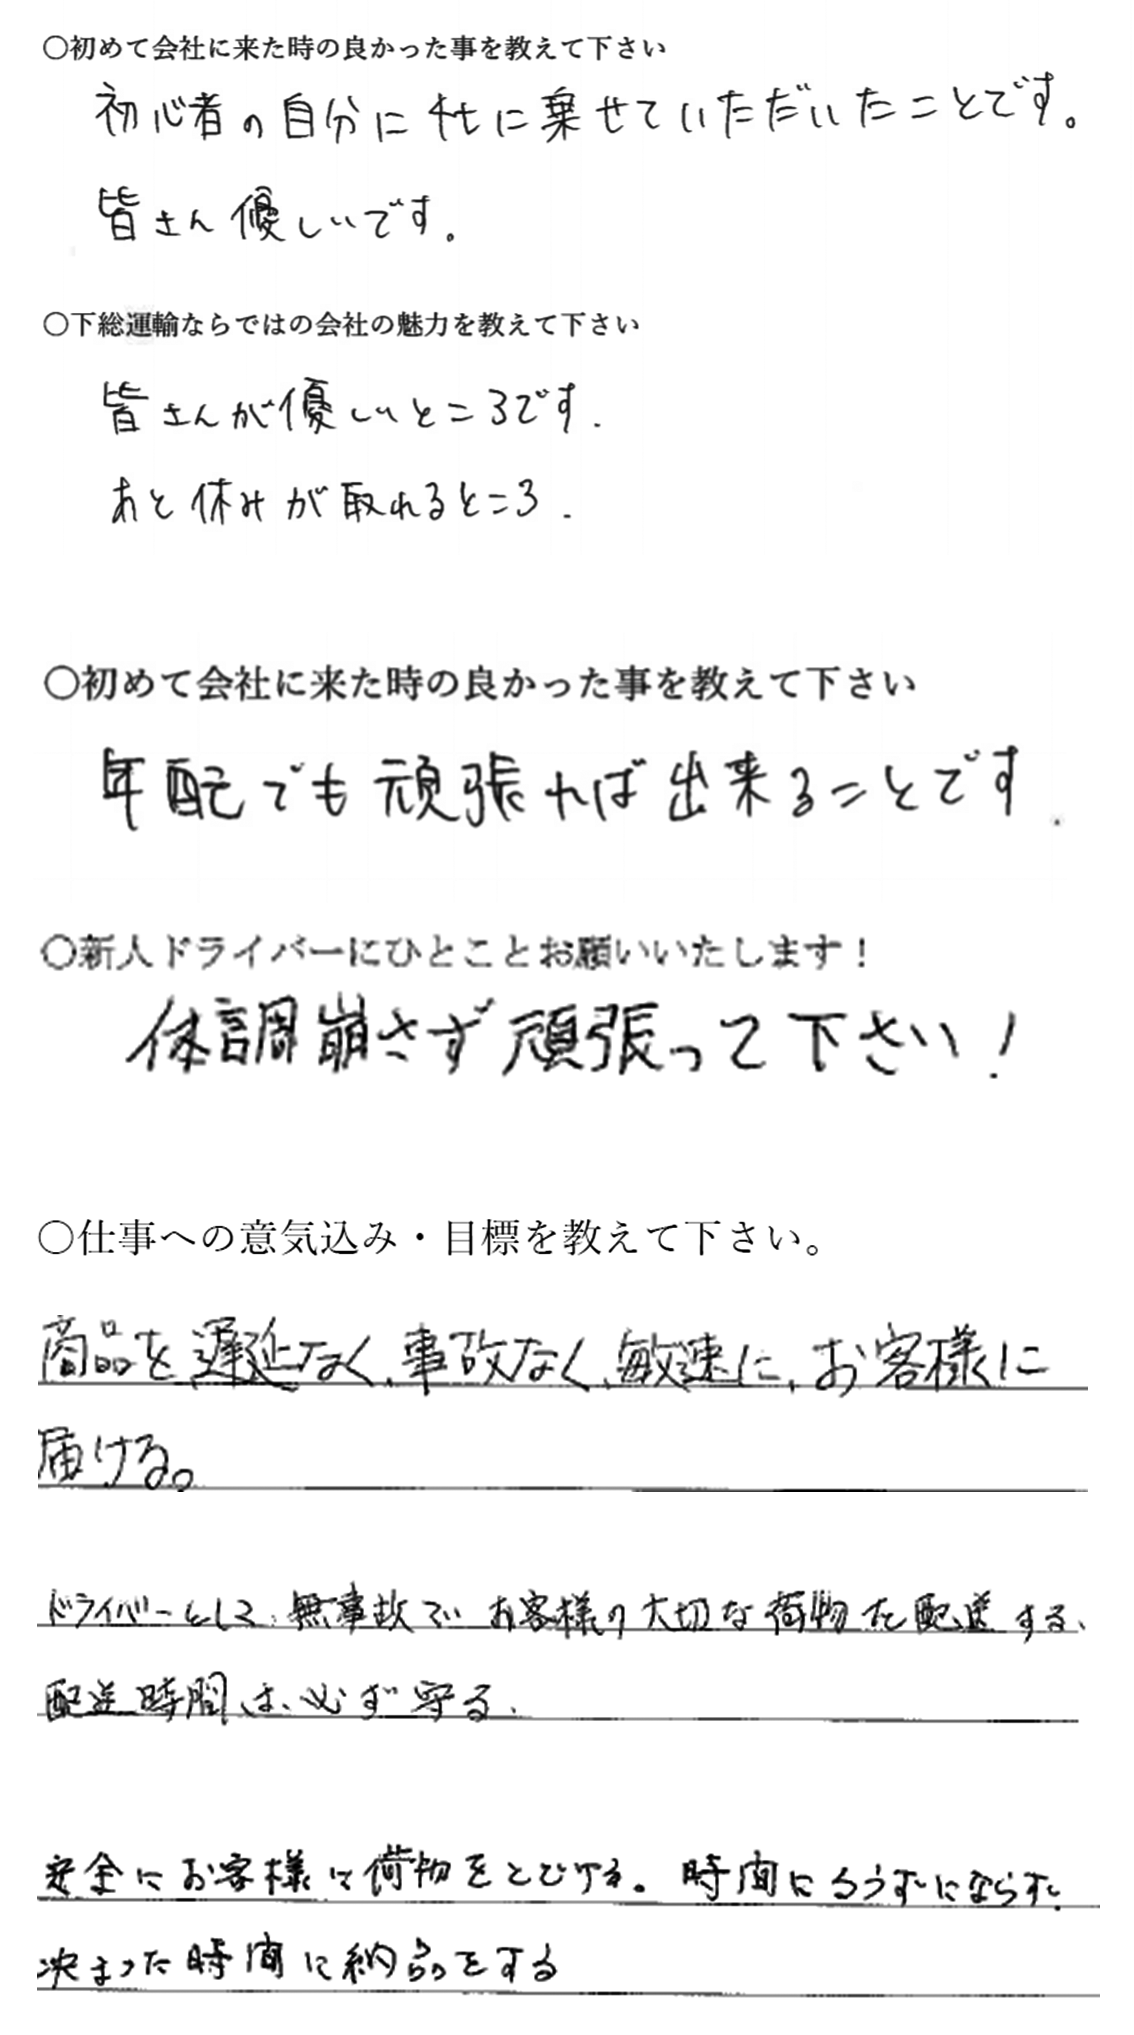 ○初めて会社に来た時の良かった事を教えて下さい
初心者の自分に4tに乗せていただいたことです。
皆さん優しいです。
○下総運輸ならではの会社の魅力を教えて下さい
皆さんが優しいところです.
あと休みが取れるところ.
○初めて会社に来た時の良かった事を教えて下さい
年配でも頑張れば出来ることです.
○新人ドライバーにひとことお願いいたします!
体調崩さず頑張って下さい!
○仕事への意気込み・目標を教えて下さい。
商品を遅延なく、事故なく、敏速に、お客様に
届ける。
ドライバーとして、無事故でお客様の大切な荷物を配送する、
配送時間は、必ず守る、
安全にお客様に荷物をとどける。時間にるうずにならず、
決まった時間に納品をする